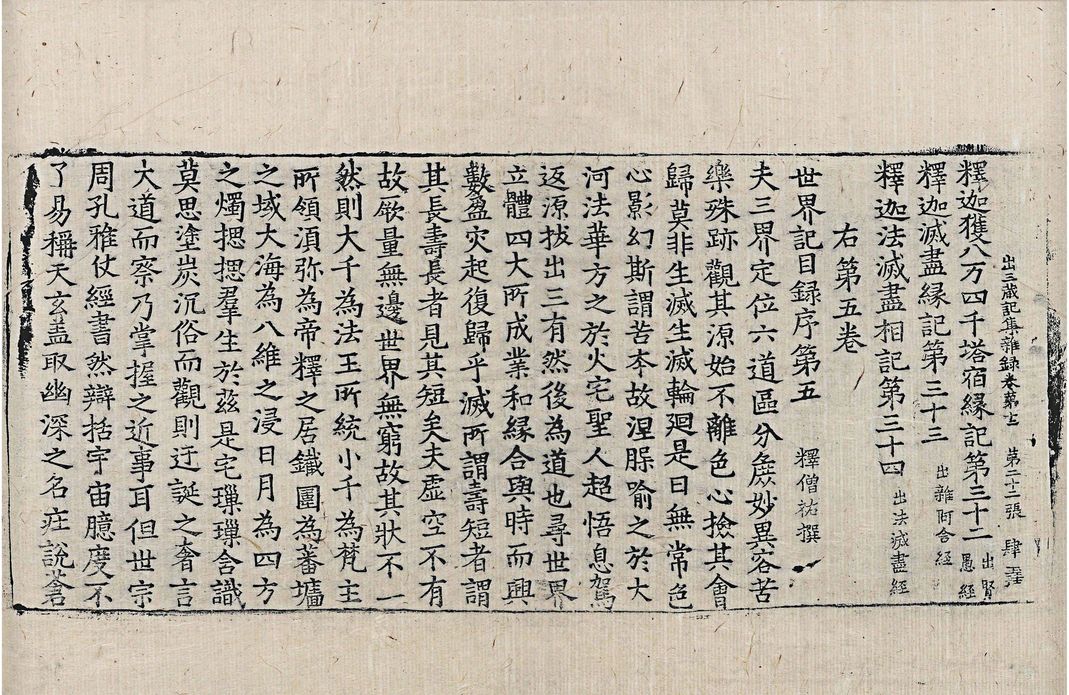 出三蔵記集雜録卷第十二 第二十二張 肆
釋迦獲八万四千塔宿縁記第三十二 出賢愚經
釋迦滅盡縁記第三十三 出雜阿含經
釋迦法滅盡相記第三十四 出法滅盡經
右第五卷
世界記目録序第五 釋僧祐撰
夫三界定位六道區分麁妙異容苦
樂殊跡觀其源始不離色心撿其會
歸莫非生滅生滅輪迴是曰無常色
心影幻斯謂苦本故涅脲喻之於大
河法華方之於火宅聖人超悟息駕
返源拔出三有然後為道也尋世界
立體四大所成業和緣合與時而興
數盈灾起復歸乎滅所謂壽短者謂
其長壽長者見其短矣夫虛空不有
故厥量無邊世界無窮故其狀不一
然則大千為法王所統小千為梵主
所領須弥為帝釋之居鐵圍為蕃墻
之域大海為八維之浸日月為四方
之燭揔揔羣生於茲是宅璅璅含識
莫思塗炭沉俗而觀則迂誕之奢言
大道而察乃掌握之近事耳但世宗
周孔雅仗經書然辯括宇宙臆度不
了易稱天玄盖取幽深之名庄說蒼